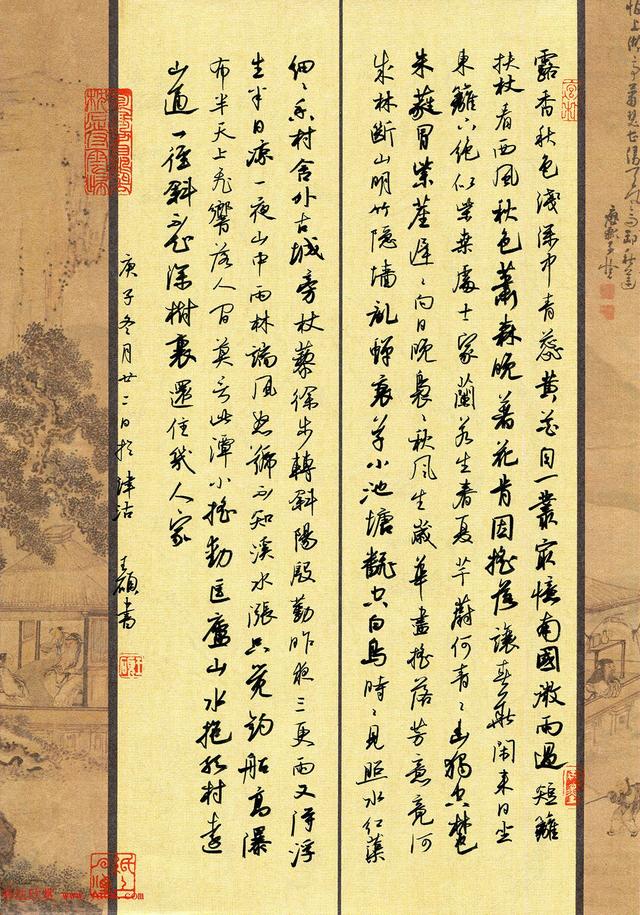 露香秋色淺深中青蕊黃花自一叢最憶南國微雨過短籬
扶杖看西風秋色蕭森晚著花肯因搖落讓春華閑來日坐
東籬下絕似柴桑處士家蘭若生春夏芊蔚何青青幽獨空林色
朱蕤冒紫莖遲遲白日晚裊裊秋風生歲華盡搖落芳意竟何
成林斷山明竹隱墻亂蟬衰草小池塘翻空白鳥時時見照水紅蕖
細細香村舍外古城旁杖藜徐步轉斜陽殷勤昨夜三更雨又得浮
生半日涼一夜山中雨林端風怒號不知溪水漲只覺釣船高瀑
布半天上飛響落人間莫言此潭小搖動匡廬山水抱孤村遠
山通一徑斜不知深樹裏還住幾人家
庚子冬月廿二日於津沽 書